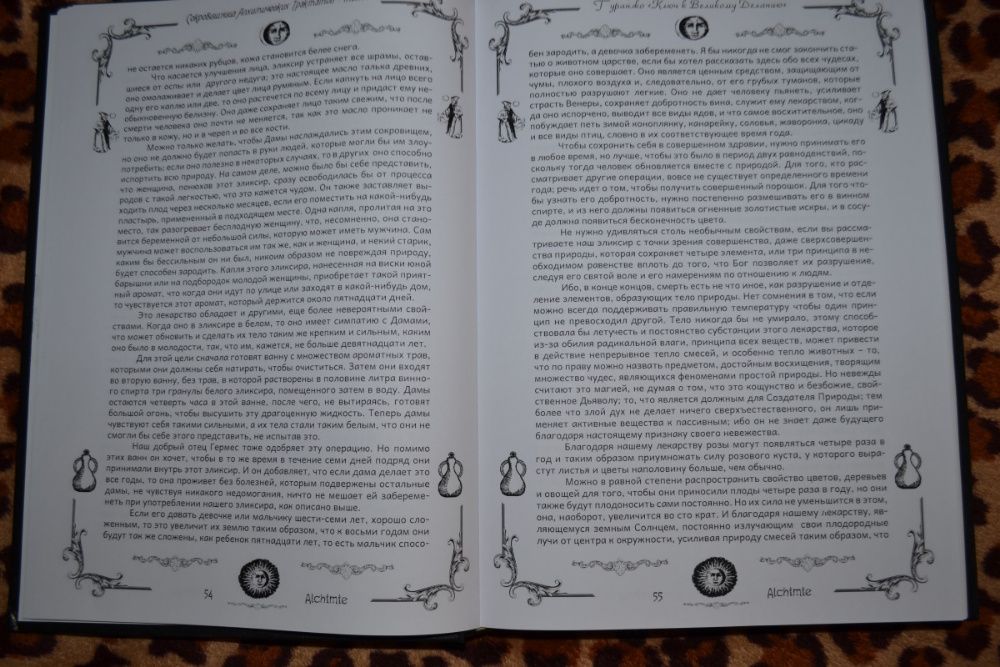 Сокровищница Алхимических Трактатов
не остается никаких рубцов, кожа становится белее снега.
Что касается улучшения лица, эликсир устраняет все шрамы, остав-
шиеся от оспы или другого недуга; это настоящее масло талька древних,
оно омолаживает и делает цвет лица румяным. Если капнуть на лицо всего
одну его каплю или две, то оно растечется по всему лицу и придаст ему не-
обыкновенную белизну. Оно даже сохраняет лица таким свежим, что после
смерти человека оно почти не меняется, так как это масло проникает не
только в кожу, но и в череп и во все кости.
Можно только желать, чтобы Дамы наслаждались этим сокровищем,
но оно не должно будет попасть в руки людей, которые могли бы им злоу-
потребить; если оно полезно в некоторых случаях, то в других оно способно
испортить всю природу. На самом деле, можно было бы себе представить,
что женщина, понюхав этот эликсир, сразу освободилась бы от процесса
родов с такой легкостью, что это кажется чудом. Он также заставляет вы-
ходить плод через несколько месяцев, если его поместить на какой-нибудь
пластырь, примененный в подходящем месте. Одна капля, пролитая на это
место, так разогревает бесплодную женщину, что, несомненно, она стано-
вится беременной от небольшой силы, которую может иметь мужчина. Сам
мужчина может воспользоваться им так же, как и женщина, и некий старик,
каким бы бессильным он ни был, никоим образом не повреждая природу,
будет способен зародить. Капля этого эликсира, нанесенная на виски юной
барышни или на подбородок молодой женщины, приобретает такой прият-
ный аромат, что когда они идут по улице или заходят в какой-нибудь дом,
то чувствуется этот аромат, который держится около пятнадцати дней.
Это лекарство обладает и другими, еще более невероятными свой-
ствами. Когда оно в эликсире в белом, то оно имеет симпатию с Дамами,
что может обновить и сделать их тело таким же крепким и сильным, каким
оно было в молодости, так, что им, кажется, не больше девятнадцати лет.
Для этой цели сначала готовят ванну с множеством ароматных трав,
которыми они должны себя натирать, чтобы очиститься. Затем они входят
во вторую ванну, без трав, в которой растворены в половине литра винно-
го спирта три гранулы белого эликсира, помещенного затем в воду. Дамы
остаются четверть часа в этой ванне, после чего, не вытираясь, готовят
большой огонь, чтобы высушить эту драгоценную жидкость. Теперь дамы
чувствуют себя такими сильными, а их тела стали таким белым, что они не
смогли бы себе этого представить, не испытав это.
Наш добрый отец Гермес тоже одобряет эту операцию. Но помимо
этих ванн он хочет, чтобы в то же время в течение семи дней подряд они
принимали внутрь этот эликсир. И он добавляет, что если дама делает это
все годы, то она проживет без болезней, которым подвержены остальные
дамы, не чувствуя никакого недомогания, ничто не мешает ей забереме-
неть при употреблении нашего эликсира, как описано выше.
Если его давать девочке или мальчику шести-семи лет, хорошо сло-
женным, то это увеличит их землю таким образом, что к восьми годам они
будут так же сложены, как ребенок пятнадцати лет, то есть мальчик спосо-
54
Alchimie
Турянжо «Ключ к Великому Деланию»
бен зародить, а девочка забеременеть. Я бы никогда не смог закончить ста-
тью о животном царстве, если бы хотел рассказать здесь обо всех чудесах,
которые оно совершает. Оно является ценным средством, защищающим от
чумы, плохого воздуха и, следовательно, от его грубых туманов, которые
полностью разрушают легкие. Оно не дает человеку пьянеть, усиливает
страсть Венеры, сохраняет добротность вина, служит ему лекарством, ког-
да оно испорчено, выводит все виды ядов, и что самое восхитительное, оно
побуждает петь зимой коноплянку, канарейку, соловья, жаворонка, цикоду
и все виды птиц, словно в их соответствующее время года.
Чтобы сохранить себя в совершенном здравии, нужно принимать его
в любое время, но лучше, чтобы это было в период двух равноденствий, по-
скольку тогда человек обновляется вместе с природой. Для того, кто рас-
сматривает другие операции, вовсе не существует определенного времени
года; речь идет о том, чтобы получить совершенный порошок. Для того что-
бы узнать его добротность, нужно постепенно размешивать его в винном
спирте, и из него должны появиться огненные золотистые искры, и в сосу-
де должно появиться бесконечность цвета.
Не нужно удивляться столь необычным свойствам, если вы рассма-
триваете наш эликсир с точки зрения совершенства, даже сверхсовершен-
ства природы, которая сохраняет четыре элемента, или три принципа в не-
обходимом равенстве вплоть до того, что Бог позволяет их разрушение,
следуя его святой воле и его намерениям по отношению к людям.
Ибо, в конце концов, смерть есть не что иное, как разрушение и отде-
ление элементов, образующих тело природы. Нет сомнения в том, что если
можно всегда поддерживать правильную температуру чтобы один прин-
цип не превосходил другой. Тело никогда бы не умирало, этому способ-
ствовала бы летучесть и постоянство субстанции этого лекарства, которое
из-за обилия радикальной влаги, принципа всех веществ, может привести
в действие непрерывное тепло смесей, и особенно тепло животных – то,
что по праву можно назвать предметом, достойным восхищения, творящим
множество чудес, являющихся феноменами простой природы. Но невежды
считают это магией, не думая о том, что это кощунство и безбожие, свой-
ственное Дьяволу; то, что является должным для Создателя Природы; тем
более что злой дух не делает ничего сверхъестественного, он лишь при-
меняет активные вещества к пассивным; ибо он не знает даже будущего
благодаря настоящему признаку своего невежества.
Благодаря нашему лекарству розы могут появляться четыре раза в
год и таким образом приумножать силу розового куста, у которого выра-
стут листья и цветы наполовину больше, чем обычно.
Можно в равной степени распространить свойство цветов, деревьев
и овощей для того, чтобы они приносили плоды четыре раза в году, но они
также будут плодоносить сами постоянно. Но их сила не уменьшится в этом,
она, наоборот, увеличится во сто крат. И благодаря нашему лекарству, яв-
ляющемуся земным Солнцем, постоянно излучающим свои плодородные
лучи от центра к окружности, усиливая природу смесей таким образом, что
55
Alchimie